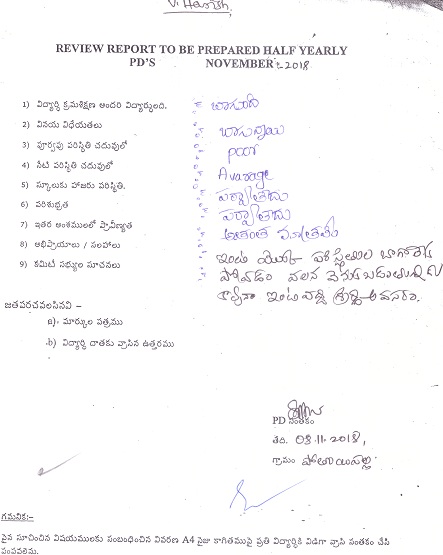 V. Harish,
REVIEW REPORT TO BE PREPARED HALF YEARLY
PD'S NOVEMBER - 2018
1) విద్యార్థి క్రమశిక్షణ అందరి విద్యార్థులది. బాగుంది
2) వినయ విధేయతలు బాగున్నాయి
3) పూర్వపు పరిస్థితి చదువులో poor
4) నేటి పరిస్థితి చదువులో Avarage
5) స్కూలుకు హాజరు పరిస్థితి.
6) పరిశుభ్రత
7) ఇతర అంశములలో ప్రావీణ్యత
8) అభిప్రాయాలు / సలహాలు
9) కమిటీ సభ్యుల సూచనలు
జతపరచవలసినవి –
a). మార్కుల పత్రము
b) విద్యార్థి దాతకు వ్రాసిన ఉత్తరము
PD సంతకం
తేది. 03.11.2018,
గ్రామం
గమనిక:-
పైన సూచించిన విషయములకు సంబంధించిన వివరణ A4 సైజు కాగితముపై ప్రతి విద్యార్థికి విడిగా వ్రాసి సంతకం చేసి
పంపవలెను.